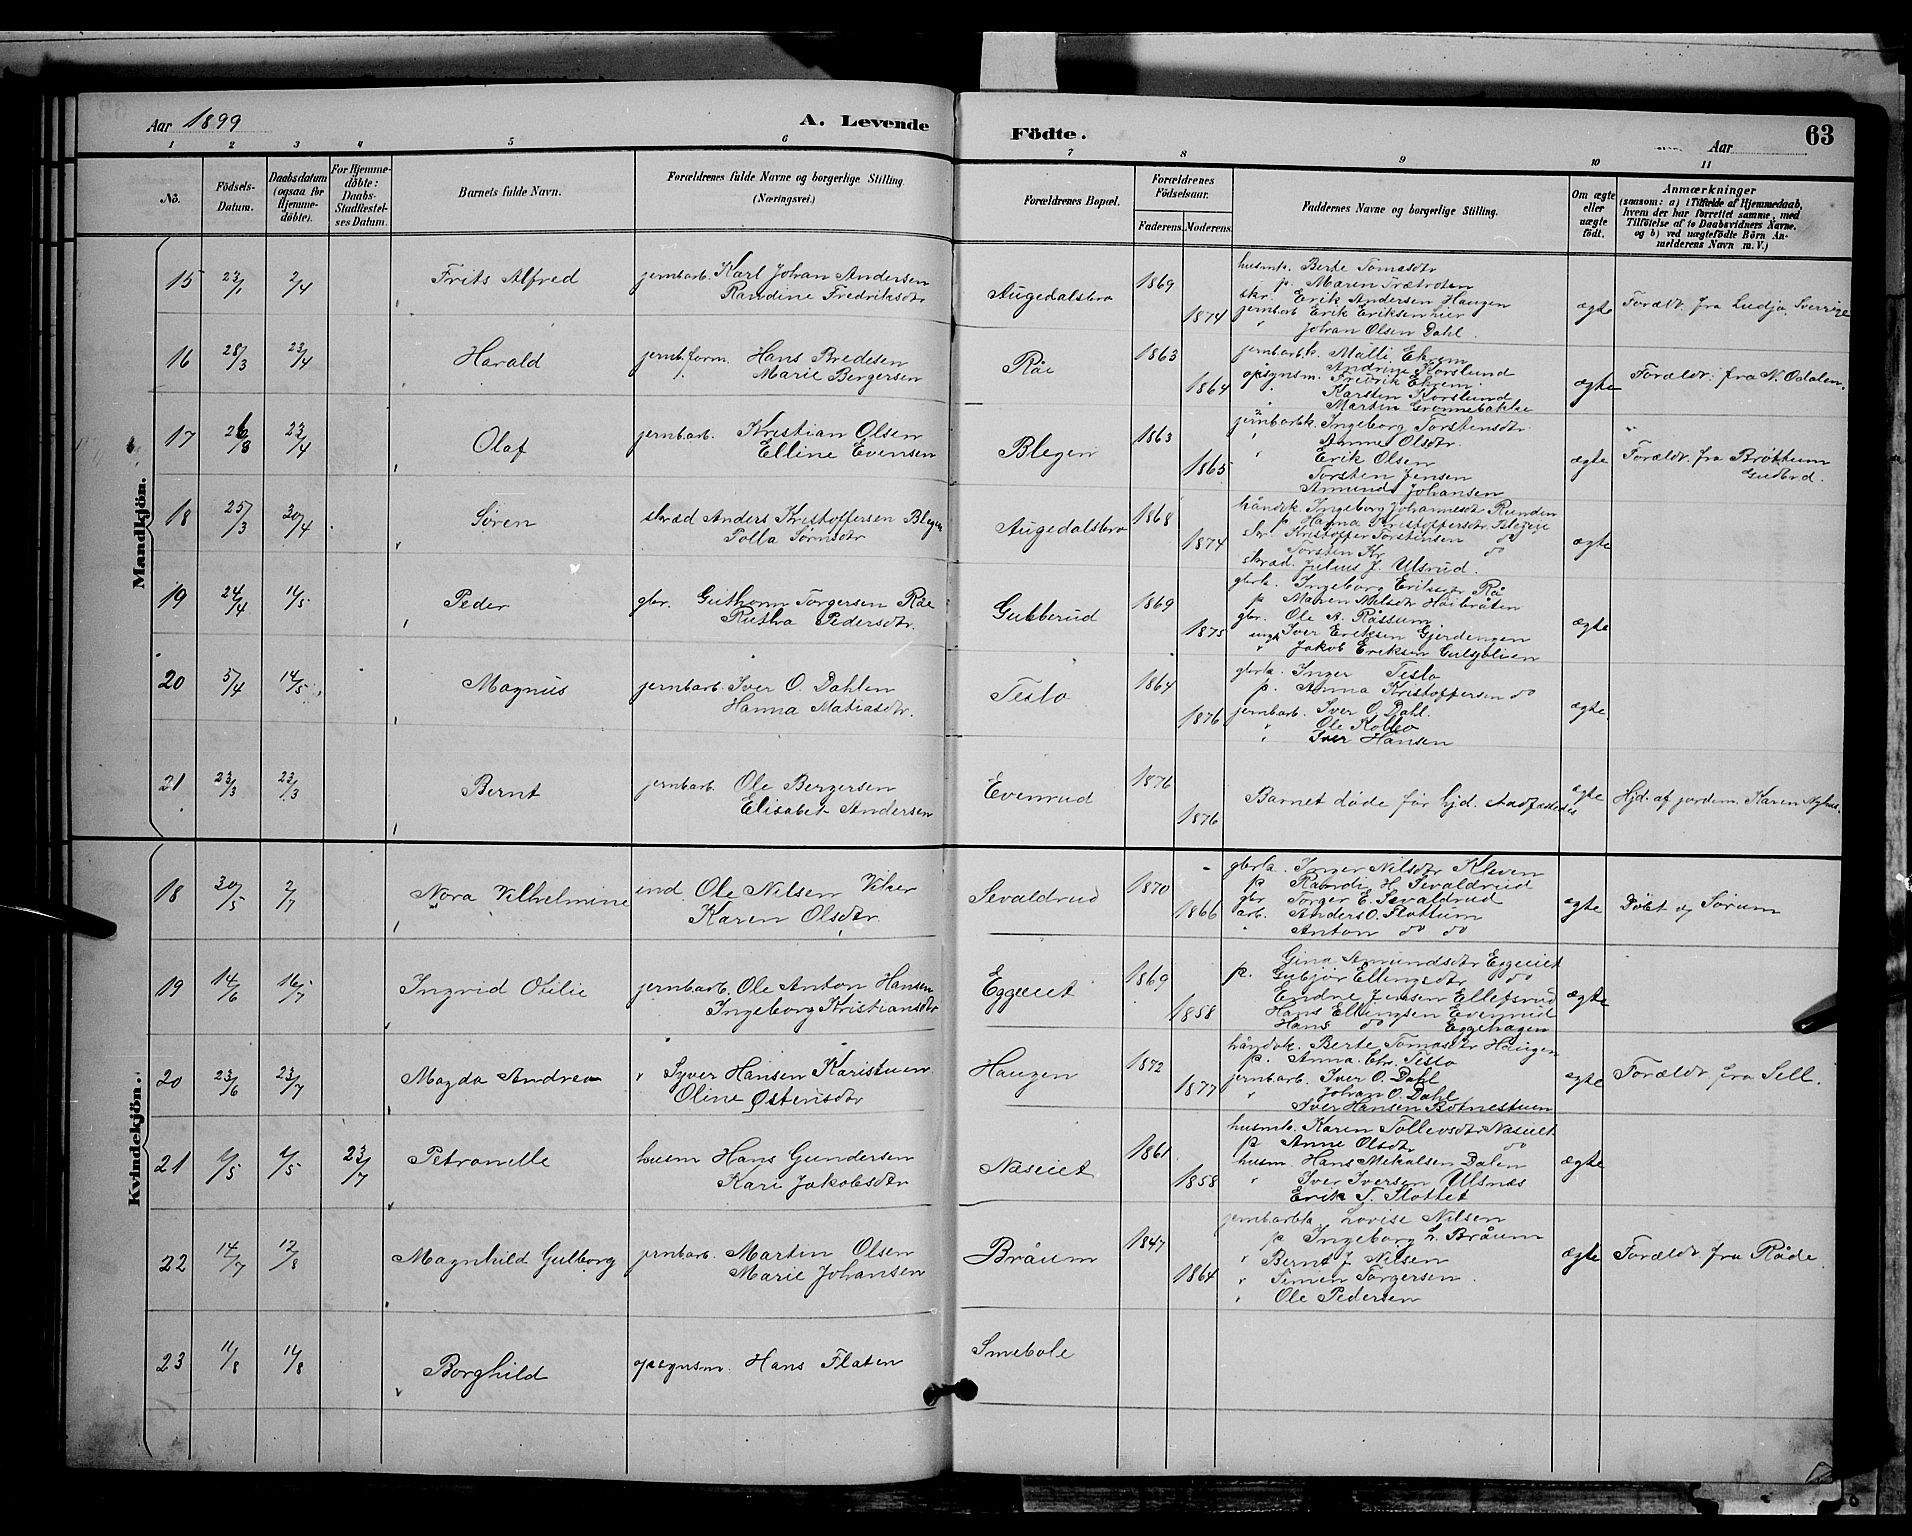 Aar 1899
A. Levende Födte.
Aar
63
1 2 3 4 5 6 7 8 9 10 11
No.
Födsels-Datum.
Daabsdatum (ogsaa for Hjemme-döbte).
For Hjemme-döbte: Daabs-Stadfæstel-ses Datum.
Barnets fulde Navn.
Forældrenes fulde Navne og borgerlige Stilling. (Næringsvei.)
Forældrenes Bopæl.
Forældrenes Födselsaar.
Faderens. Moderens.
Faddernes Navne og borgerlige Stilling.
Om ægte eller uægte födt.
Anmærkninger
(saasom: a) i Tilfælde af Hjemmedaab,
hvem der har forrettet samme, med
Tilföielse af to Daabsvidners Navne.
og b) ved uægtefödte Börn An-
melderens Navn m. V.)
Mandkjön.
15 23/1 2/4 Frits Alfred jernbarb. Karl Johan Andersen
Randine Fredriksdtr
Augedalsbro 1869 1874
husmk. Berte Tomasdtr
p. Maren Trætroten
skr. Erik Andersen Haugen
jernbarb Erik Eriksen
" Johan Olsen Dahl.
ægte Foræld. fra Sverige
16 28/3 23/4 Harald jernb.form. Hans Bredesen
Marie Bergersen
Råe 1863 1864
jernbarbk. Malli Ekrem
Andrine Korslund
opsynsm. Fredrik Ekrem.
Karsten Korslund
Martin Grønnebakke
ægte Forældr. fra N. Odalen.
17 23/4 Olaf jernbarb. Kristian Olsen
Elline Evensen
Blegen 1863 1865
jernbarbk. Ingeborg Torstensdtr
" Anne Olsdtr.
" Erik Olsen
Torsten Jensen
Amund Johansen
ægte Forældr. fra Brøttum
Gudbrd.
18 25/3 30/4 Søren skræd Anders Kristoffersen Blegen
Polla Sørnsdtr
Augedalsbro 1868 1874
håndvk. Ingeborg Johannesdt Runden
p. Hanna Kristoffersdtr. Blegeie
skr. Kristoffer Torstensen do
Torsten Kr. do
skræd. Julius J. Ulsrud.
ægte
19 24/4 11/5 Peder gbr. Guthorm Torgersen Råe
Rutha Pedersdtr.
Gubberud 1869 1875
gbrk. Ingeborg Eriksdtr Rå
p. Maren Nilsdtr Høibråten
gbr. Ole A. Råssum.
ungk Iver Eriksen Gjerdengen
" Jakob Eriksen Gulsjølien
ægte
20 5/4 14/5 Magnus jernbarb. Iver O. Dahlen
Hanna Matiasdtr.
Teslo 1864 1876
gbrk. Inger Teslo
p. Anna Kristoffersen do
jernbarb. Iver O. Dahl.
" Ole Kolbo
" Iver Hansen
ægte.
21 23/3 23/3 Bernt jernbarb. Ole Bergersen
Elisabet Andersen
Evenrud 1876 1876
Barnet døde før hjd. stadfæstedes
ægte Hjd. af jordem. Karen Nyhus.
Kvindekjön.
18 30/5 2/7 Nora Vilhelmine ind. Ole Nilsen Viker
Karen Olsdtr.
Sevaldrud 1870 1866
gbrk. Inger Nilsdtr Kleven
p Randi H. Sevaldrud
gbr Torger E. Sevaldrud
arb. Anders O. Flottum
" Anton do do
ægte Døbt i Sørum
19 14/6 16/7 Ingrid Otilie jernbarb. Ole Anton Hansen
Ingeborg Kristiansdtr
Eggeiet 1869 1858
Gina Amundsdtr Eggeiet
p. Gubjør Ellingsdtr do
Endre Jensen Ellefsrud
Hans Ellingsen Evenrud
Hans do Eggehagen
ægte
20 23/6 23/7 Magda Andrea " Syver Hansen Karistuen
Oline Østensdtr
Haugen 1872 1877
håndvk. Berte Tomasdtr Haugen
p. Anna Chr. Teslo
jernbarb. Iver O. Dahl
" Johan O. Dahl
Iver Hansen Botnestuen
ægte Forældr. fra Sell.
21 4/5 4/5 23/7 Petronelle husm Hans Gundersen
Kari Jakobsdtr
Næseiet 1861 1858
husmk. Karen Tollevsdtr Næseiet
p Anne Olsdtr do
husm. Hans Mikalsen Dalen
" Iver Iversen Ulsnæs
Erik T. Slottet
ægte
22 14/7 12/8 Magnhild Gulborg jernbarb. Martin Olsen
Marie Johansen
Bråum 1847 1864
jernbarbk. Lovise Nilsen
p Ingeborg L. Bråum
" Bernt J. Nilsen
" Simen Torgersen.
" Ole Pedersen
ægte Forældr. fra Råde.
23 11/8 11/8 Borghild opsynsm. Hans Flaten
Smebole